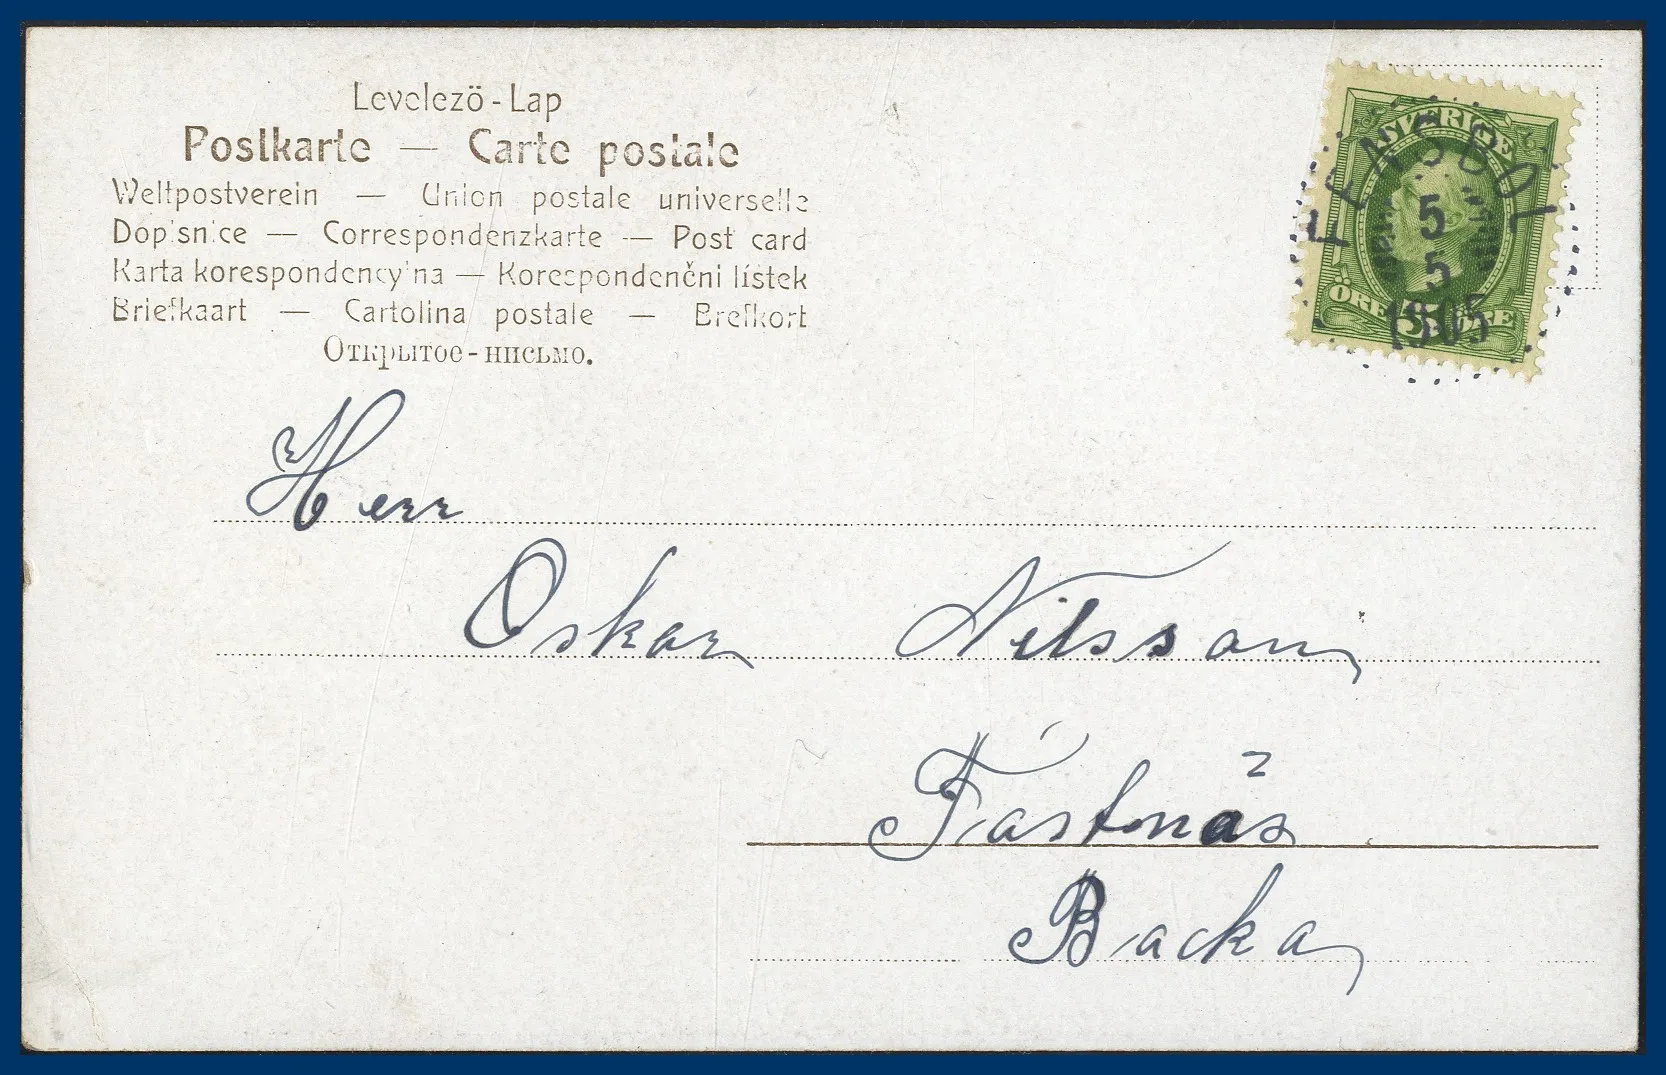 Levelező - Lap
Postkarte — Carte postale
Weltpostverein — Union postale universelle
Dopisnice — Correspondenzkarte — Post card
Karta korespondencyjna — Korespondenčni lístek
Briefkaart — Cartolina postale — Brefkort
Открытое - письмо.
SVERIGE
5
5
1905
ÖRE 5 ÖRE
Herr
Oskar Nilsson
Fästnäs
Backa